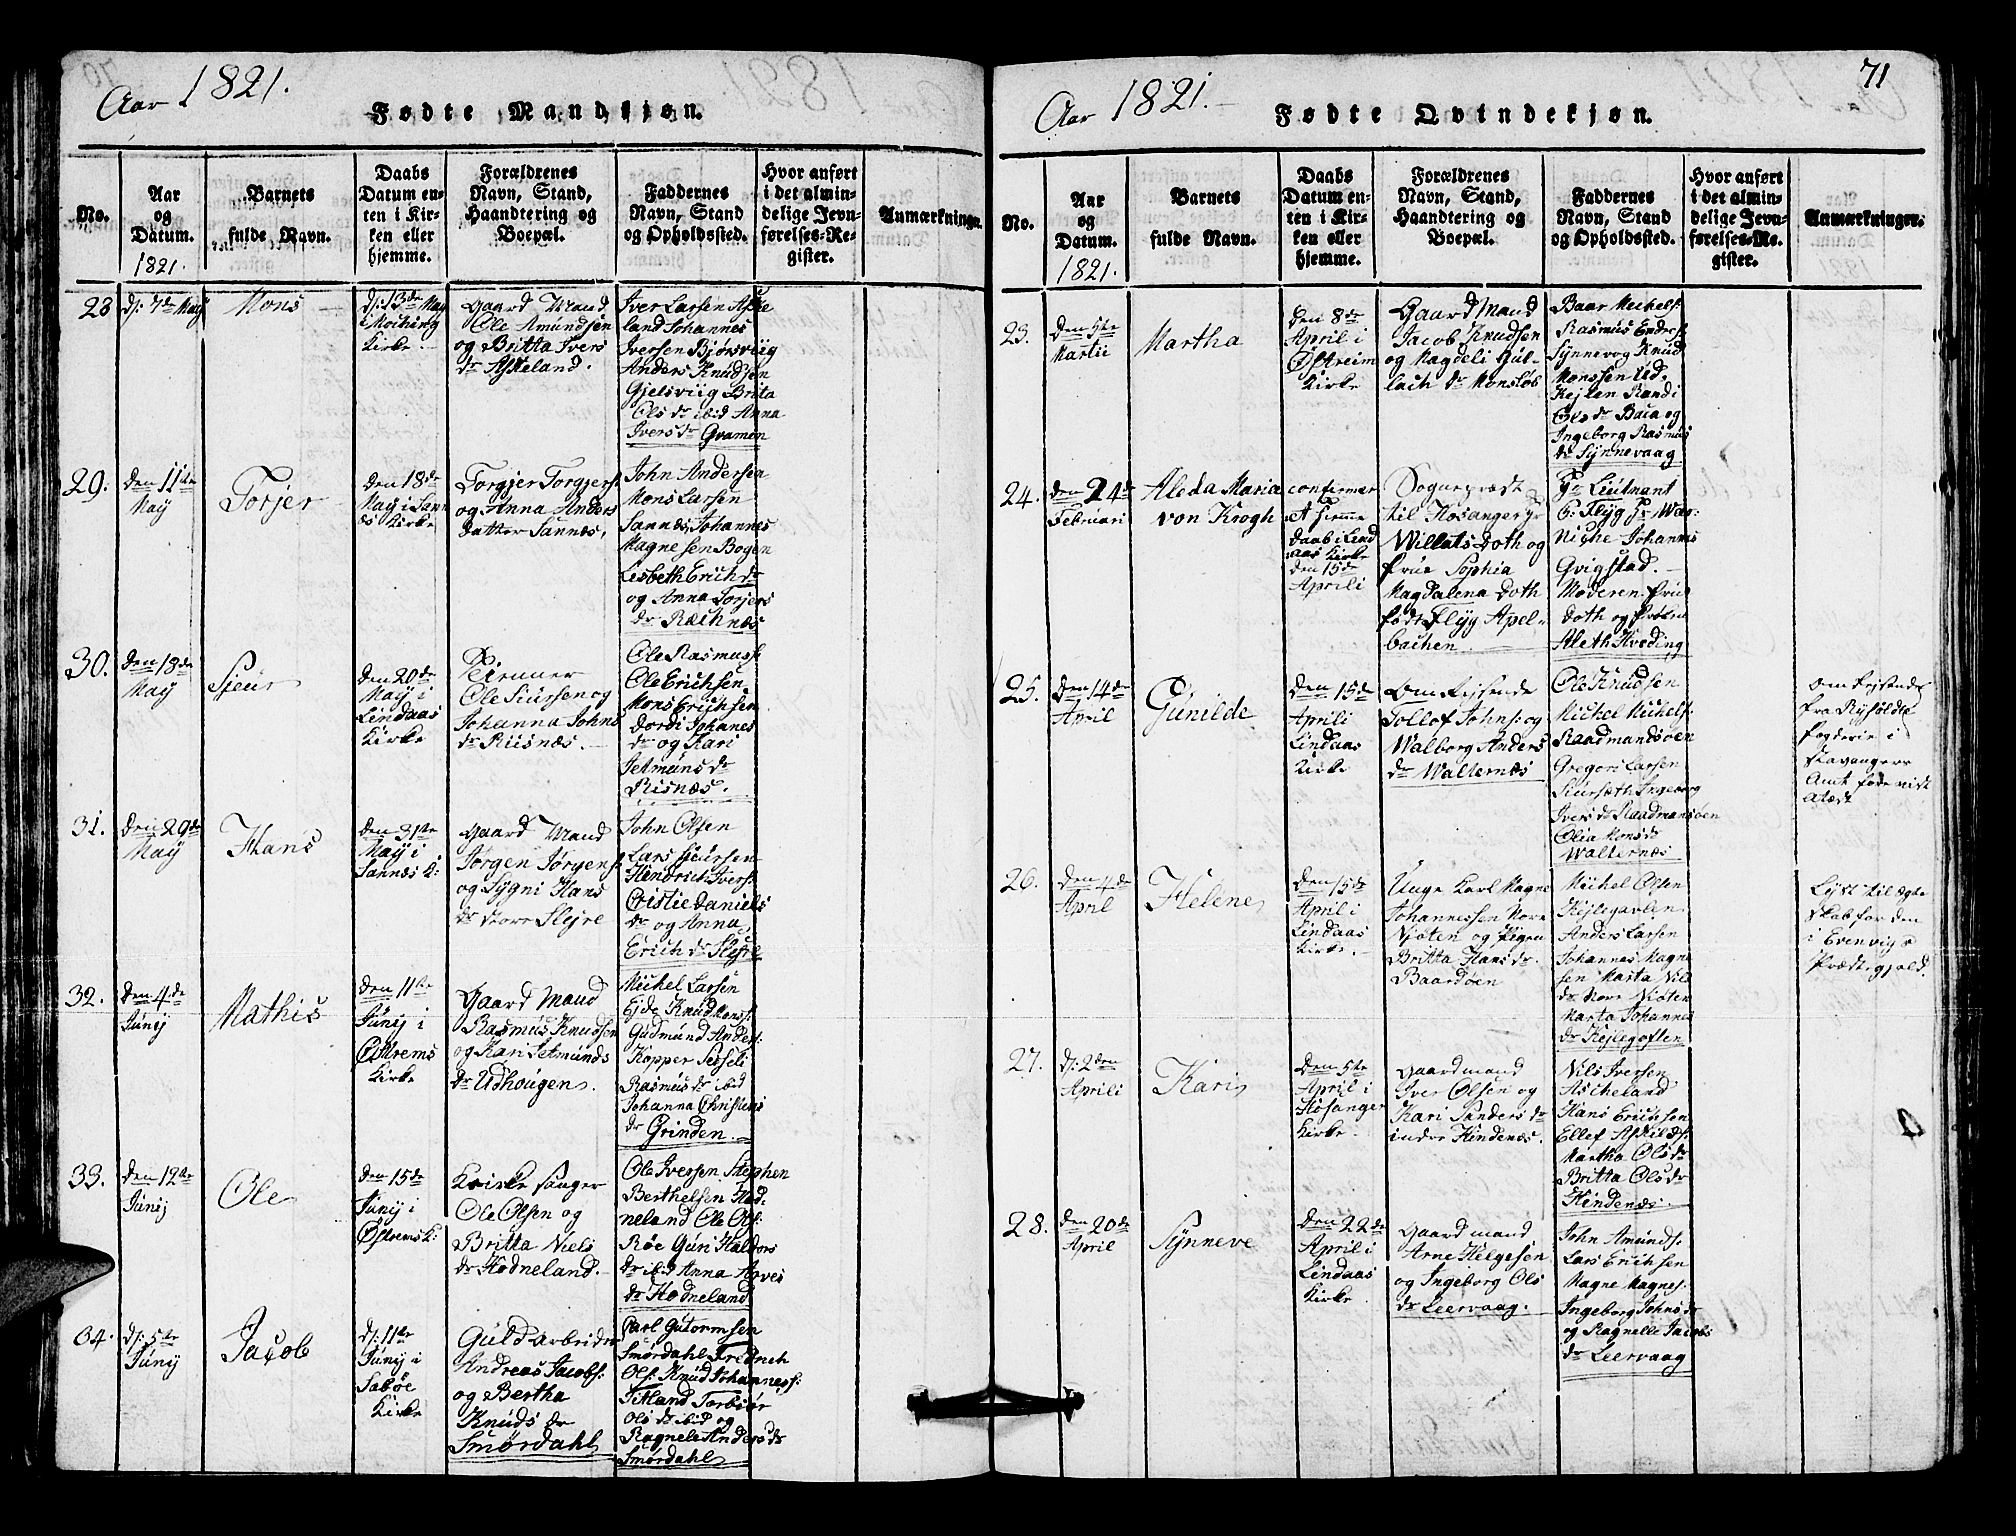 Aar 1821.
Fødte Mandkjøn.
No.
Aar
og
Datum.
1821.
Barnets
fulde Navn.
Daabs
Datum en-
ten i Kir-
ken eller
hjemme.
Forældrenes
Navn, Stand,
Haandtering og
Boepæl.
Faddernes
Navn, Stand
og Opholdssted.
Hvor anført
i det almin-
delige Jevn-
førelses-Re-
gister.
Anmærkninger.
28
D: 7de May
Mons
D: 13de May
i Mochring
Kirke.
Gaard Mand
Ole Amundsen
og Britta Ivers
dr Askeland.
Iver Larsen Aske
land Johannes
Iversen Bjørsviig
Anders Knudsen
Gjelsviig Brita
Ols dr ibid Anna
Ivers dr Qvamen
29.
den 11te
May
Torjer
den 18de
May i San
næs Kirke
Torgjer Torgjers:
og Anna Anders
datter Sannæs,
John Andersen
Mons Larsen
Sannæs, Johannes
Magnesen Bogen
Lisbeth Erich dr
og Anna Torjers
dr Ræchnæs
30.
den 18de
May
Sjeur
den 20de
May i
Lindaas
Kirke
Ole Siursen og
Johanna Johns
dr Riisnæs.
Ole Rasmuss:
Ole Erichsen
Mons Erichsen
Dordi Johanes
dr og Kari
Jetmuns dr
Risnæs.
31.
den 29de
May
Hans
den 31te
May i
Sannæs K:
Gaard Mand
Jørgen Jørgens:
og Sygni Hans
dr Store Slejre
John Olsen
Lars Siursen
Hendrich Ivers:
Cristie Daniels
dr og Anna
Erich dr Slejre
32.
den 4de
Junij
Mathis
den 11te
Junij i
Østrems
Kirke
Gaard Mand
Rasmus Knudsen
og Kari Jetmunds
dr Udhougen.
Michel Larsen
Ejde Knud Mons:
Gudmund Anders:
Kopper Seseli
Rasmus dr ibid
Johanna Christens
dr Grinden.
33.
den 12te
Junij
Ole
den 15de
Junij i
Østrems K:
Kirke sanger
Ole Olsen og
Britta Niels
dr Hodneland.
Ole Iversen Steghen
Berthelsen Hod
neland Ole Ols:
Røe Guri Haldors
dr ibid Anna Arves
dr Hodneland
34.
D: 5te
Junij
Jacob
D: 11te
Junij i
Sæbøe
Kirke
Guldarbeider
Andreas Jacobs:
og Bertha
Knuds dr
Smørdahl
Carl Gutormsen
Smørdahl Fredrich
Ols: Knud Johanness:
Titland Torbiør
Ols dr ibid og
Ragnele Anders dr
Smørdahl
71
Aar 1821.
Fødte Qvindekjøn.
No.
Aar
og
Datum.
1821.
Barnets
fulde Navn.
Daabs
Datum en-
ten i Kir-
ken eller
hjemme.
Forældrenes
Navn, Stand,
Haandtering og
Boepæl.
Faddernes
Navn, Stand
og Opholdssted.
Hvor anført
i det almin-
delige Jevn-
førelses-Re-
gister.
Anmærkninger.
23.
Den 5te
Martii
Martha
Den 8de
April i
Østreim
Kirke
Gaard Mand
Jacob Knudsen
og Magdeli Gul-
lach dr Monsløb
Baar Michels:
Rasmus Endres:
Synnevog Knud
Monssen Ud,
Kejlen Randi
Ols dr Baca og
Ingeborg Rasmus
dr Synnevaag
24.
den 24de
Februari
Aleda Maria
von Krogh
confirmer
et hjemme
Daab i Lind
aas Kirke
den 15de
Aprili
Sogneprædst
til Hosanger Hr
Willats Doth og
frue Sophia
Magdalena Doth
født Flyg Apel-
bachen
Hr Lieutnant
C: Flyg Hr War
Niche Johannes
Qvigstad.
Moderen frue
Doth og frøken
Aleth Hveding
25.
Den 14de
April
Gunilde
Den 15de
Aprili
Lindaas
Kirke
Omreisende
Tollof Johns: og
Walborg Anders
dr Walternæs
Ole Knudsen
Michel Michels:
Raadmandsøen
Gregori Larsen
Siursæth Ingeborg
Ivers dr Raadmansøen
Olia Mons dr
Walternæs
Omreisende
fra Ryfoldte
fogderie i
Stavanger
Amt
26.
den 4de
April
Helene
den 15de
April i
Lindaas
Kirke.
Unge Karl Magne
Johannessen Nore
Njøten og Pigen
Britta Hans dr
Baardøen
Michel Olsen
Kejlegavlen
Anders Larsen
Johannes Magne
sen Marta Nils
dr Nore Niøten
Marta Johannes
dr Kejlegoften
Lyst til Ægte
skab for den
i Evenvigs
Prædstegjeld.
27.
D: 2den
Aprili
Kari
Den 5te
April i
Hosanger
Kirke.
Gaard mand
Iver Olsen og
Kari Sanders dr
indre Hindenæs.
Nils Iversen
Ascheland
Hans Erichsen
Ellef Askilds:
Martha Ols dr
Britta Ols dr
Hindenæs.
28.
den 20de
April
Synneve
Den 22de
April i
Lindaas
Kirke.
Gaard mand
Arne Helgesen
og Ingeborg Ols
dr Leervaag.
John Amunds:
Lars Erichsen
Magne Magnes:
Ingeborg Johns dr
og Ragnelle Jacobs
dr Leervaag